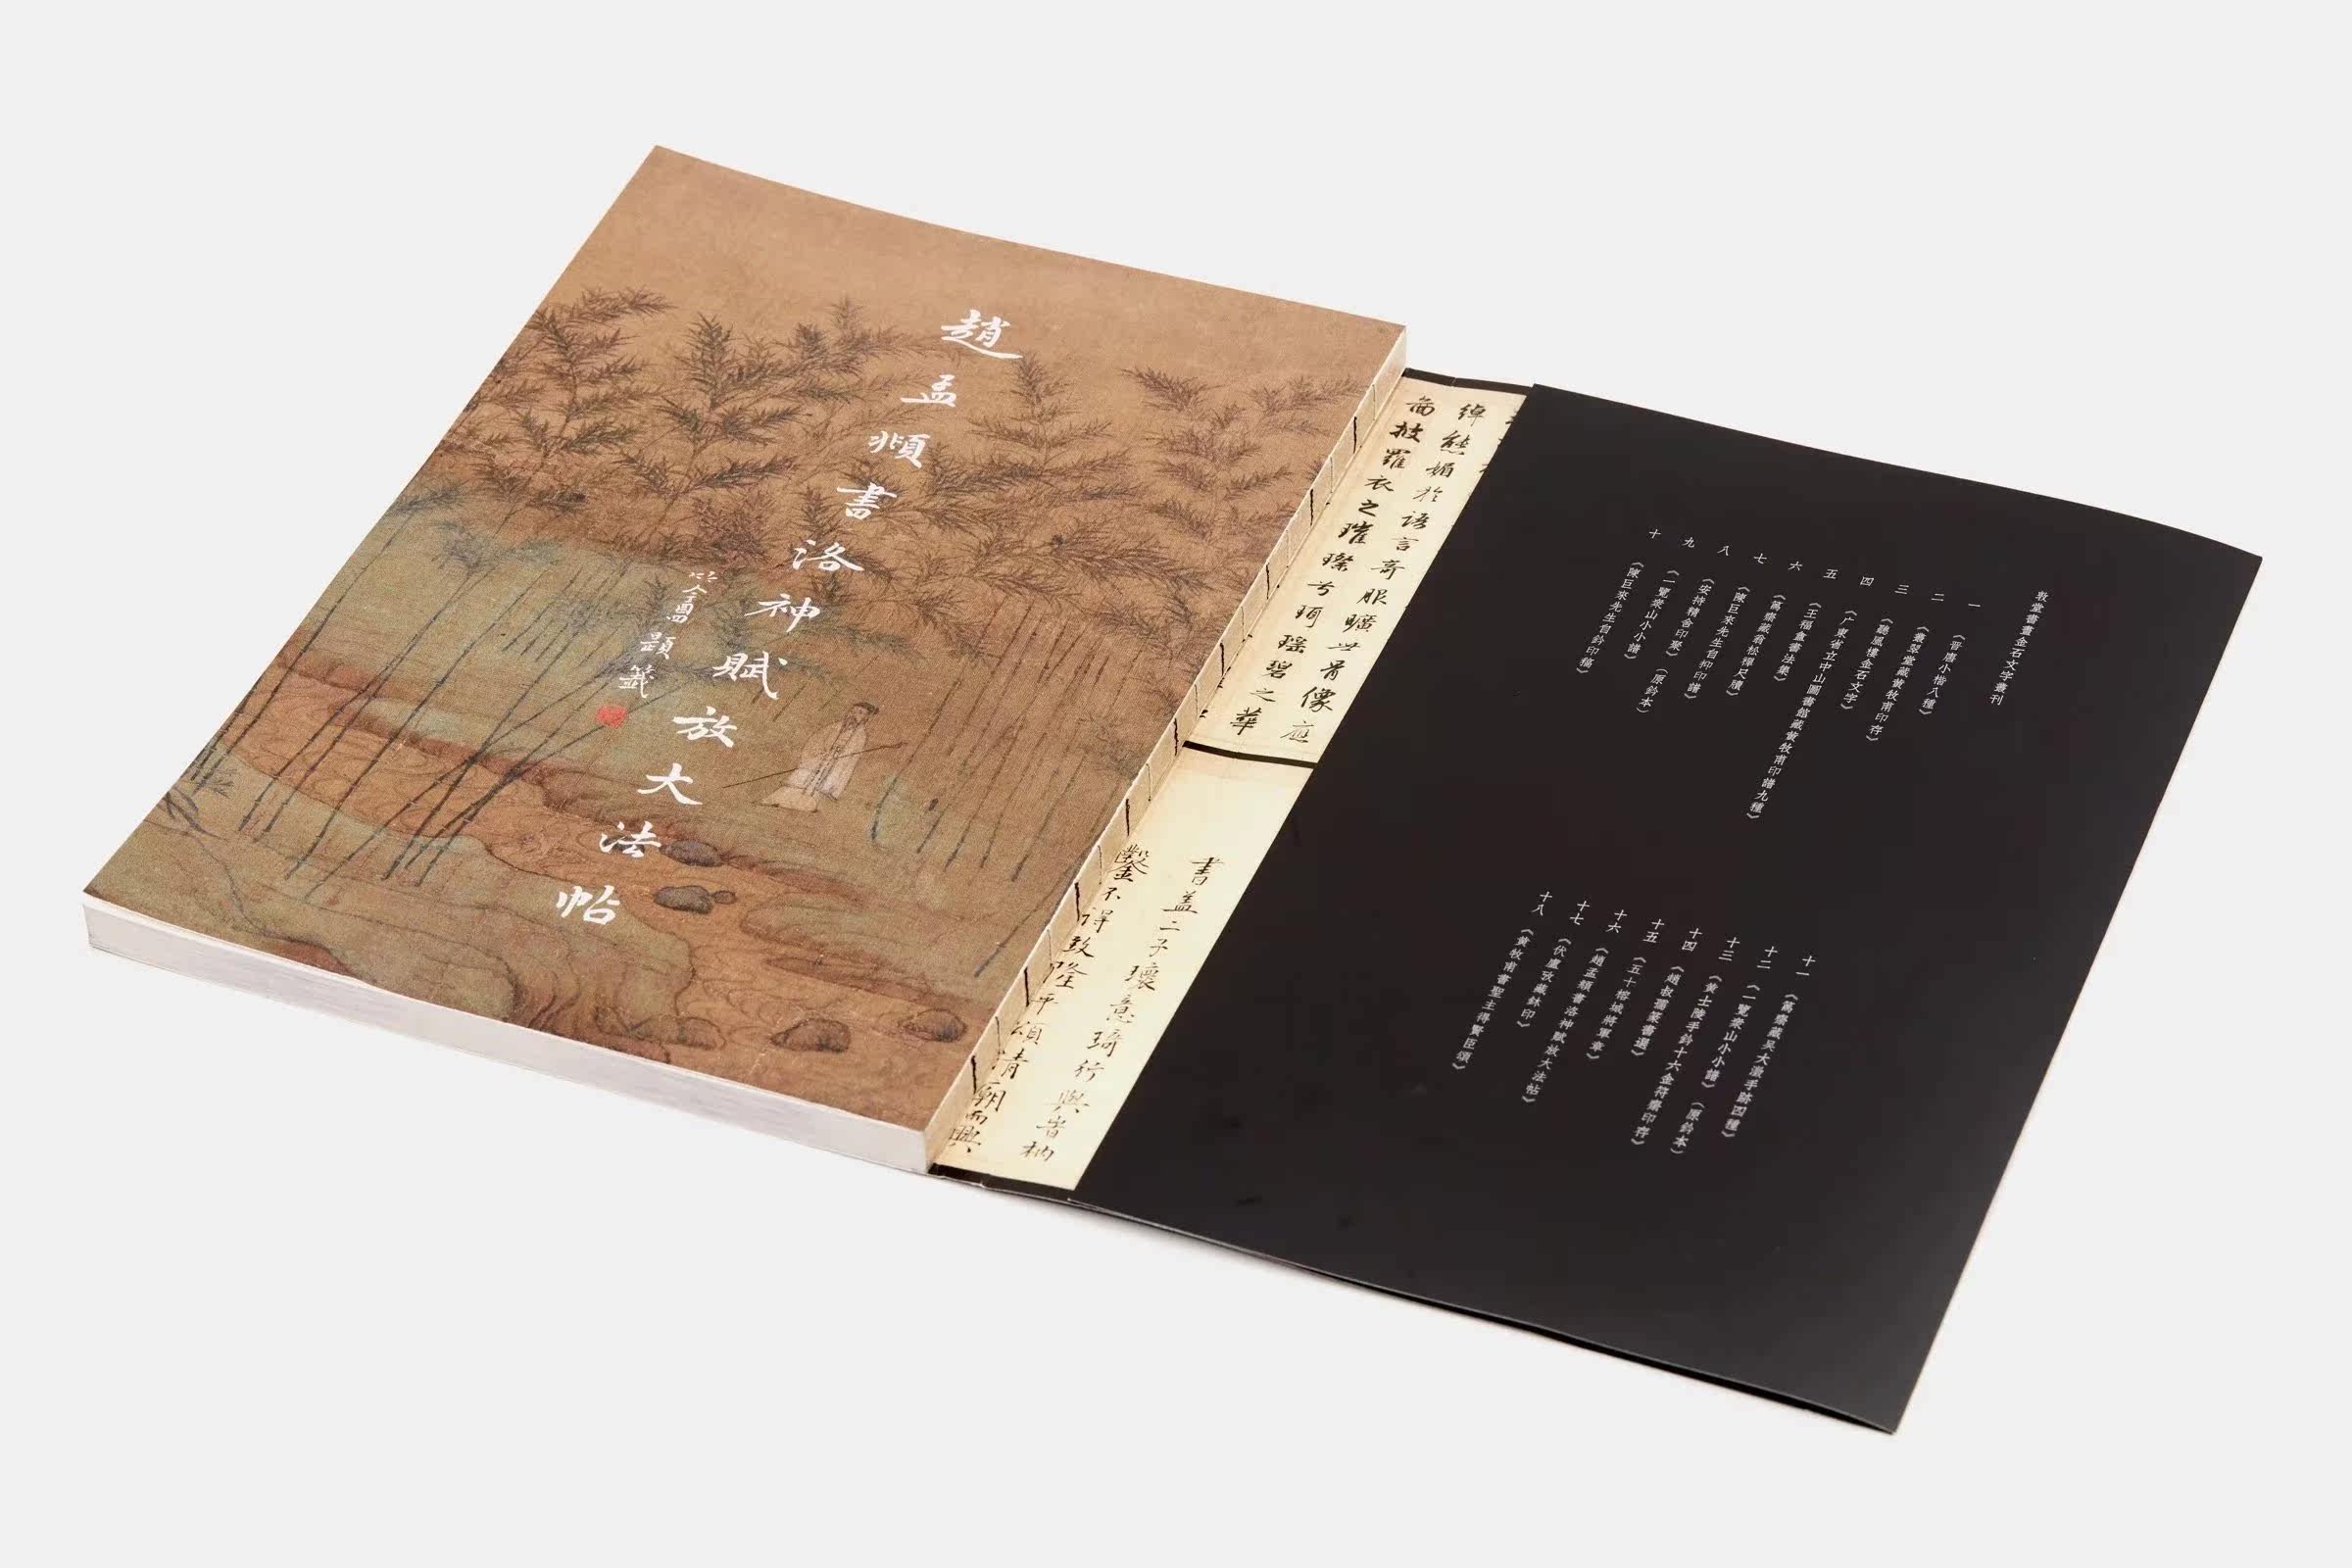 趙孟頫書洛神賦放大法帖
題籤
綽態媚於語言奇服曠世骨像應
披羅衣之璀璨兮珥瑤碧之華
書盖二子壞意琦行與岩
鑿不得致隆平頌清廟而興
敦堂書畫金石文字叢刊
一 《晋唐小楷八種》
二 《叢翠堂藏黄牧甫印存》
三 《聽風樓金石文字》
四 《广東省立中山圖書館藏黄牧甫印譜九種》
五 《王福盦書法集》
六 《萬齋藏翁松禪尺牘》
七 《陳巨來先生自抑印譜》
八 《安持精舍印聚》
九 《一覽衆山小小譜》（原鈐本）
十 《陳巨來先生自鈐印稿》
十一 《萬齋藏吴大澂手跡四種》
十二 《一覽衆山小小譜》（原鈐本）
十三 《黄士陵手鈐十六金符齋印存》
十四 《趙叔孺篆書選》
十五 《五十榕城將軍章》
十六 《趙孟頫書洛神賦放大法帖》
十七 《伏廬攷藏鉢印》
十八 《黄牧甫書聖主得賢臣頌》